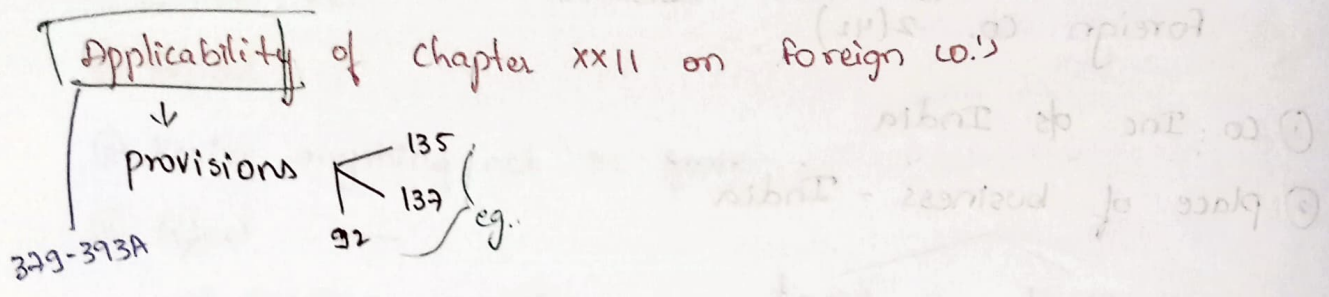 Applicability of Chapter XXII on foreign co.'s
provisions 135
137
92
eg.
379-393A